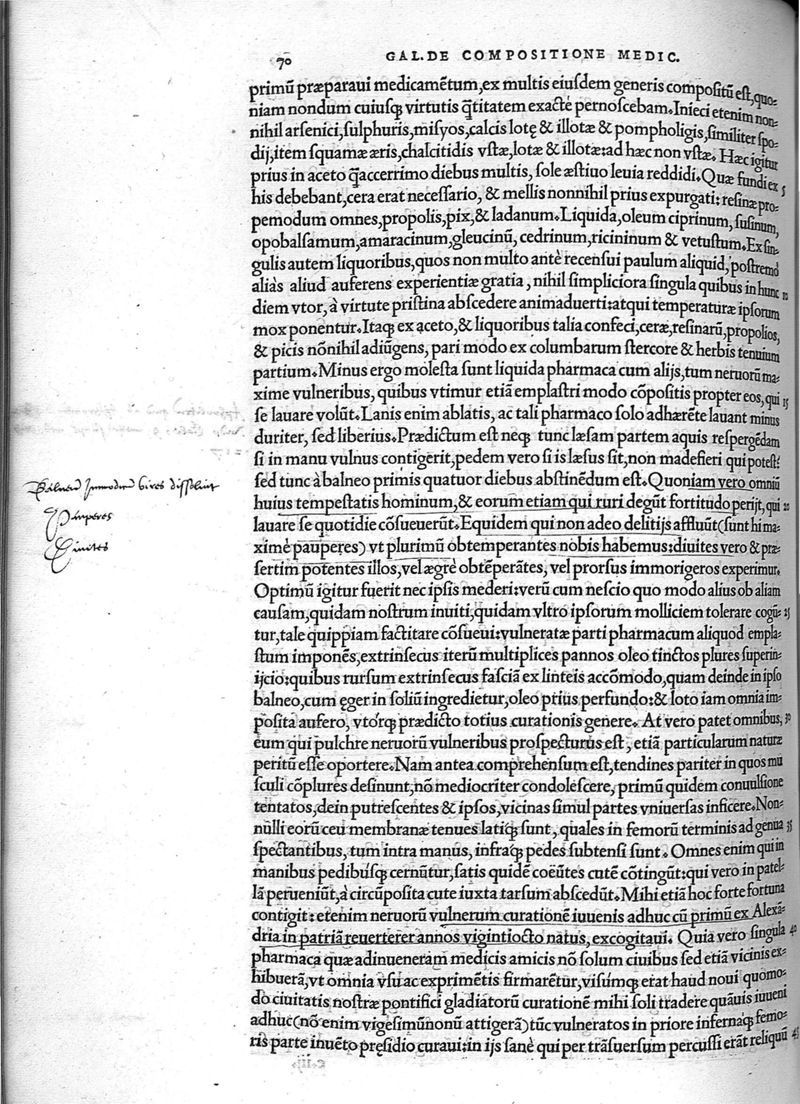 70 GAL. DE COMPOSITIONE MEDIC.
primū præparaui medicamētum, ex multis eiusdem generis compositū est, quo-
niam nondum cuiusq; virtutis q̄titatem exactè pernoscebam. Inieci etenim non-
nihil arsenici, sulphuris, misyos, calcis lotę & illotæ & pompholigis, similiter spo-
dij, item squamæ æris, chalcitidis vstæ, lotæ & illotæ: ad hæc non vstæ. Hæc igitur
prius in aceto q̄accerrimo diebus multis, sole æstiuo leuia reddidi. Quæ fundi ex 5
his debebant, cera erat necessario, & mellis nonnihil prius expurgati: resinæ pro-
pemodum omnes, propolis, pix, & ladanum. Liquida, oleum ciprinum, susinum,
opobalsamum, amaracinum, gleucinū, cedrinum, ricininum & vetustum. Ex sin-
gulis autem liquoribus, quos non multo antè recensui paulum aliquid, postremò
aliàs aliud auferens experientiæ gratia, nihil simpliciora singula quibus in hunc 10
diem vtor, à virtute pristina abscedere animaduerti: atqui temperaturæ ipsorum
mox ponentur. Itaq; ex aceto, & liquoribus talia confeci, ceræ, resinarū, propolios,
& picis nōnihil adiūgens, pari modo ex columbarum stercore & herbis tenuium
partium. Minus ergo molesta sunt liquida pharmaca cum alijs, tum neruorū ma-
xime vulneribus, quibus vtimur etiā emplastri modo cōpositis propter eos, qui 15
se lauare volūt. Lanis enim ablatis, ac tali pharmaco solo adhærēte lauant minus
duriter, sed liberius. Prædictum est neq; tunc læsam partem aquis respergēdam
si in manu vulnus contigerit, pedem vero si is læsus sit, non madefieri qui potest?
sed tunc à balneo primis quatuor diebus abstinēdum est. Quoniam vero omniū
huius tempestatis hominum, & eorum etiam qui ruri degūt fortitudo perijt, qui 20
lauare se quotidie cōsueuerūt. Equidem qui non adeo delitijs affluūt (sunt hi ma-
ximè pauperes) vt plurimū obtemperantes nobis habemus: diuites vero & præ-
sertim potentes illos, vel ægrè obtēperātes, vel prorsus immorigeros experimur.
Optimū igitur fuerit nec ipsis mederi: verū cum nescio quo modo alius ob aliam
causam, quidam nostrum inuiti, quidam vltro ipsorum molliciem tolerare cogū- 25
tur, tale quippiam factitare cōsueui: vulneratæ parti pharmacum aliquod empla-
stum imponēs, extrinsecus iterū multiplices pannos oleo tinctos plures superin-
ijcio: quibus rursum extrinsecus fasciā ex linteis accōmodo, quam deinde in ipso
balneo, cum eger in soliū ingredietur, oleo prius perfundo: & loto iam omnia im-
posita aufero, vtorq; prædicto totius curationis genere. At vero patet omnibus, 30
eum qui pulchre neruorū vulneribus prospecturus est, etiā particularum naturæ
peritū esse oportere. Nam antea comprehensum est, tendines pariter in quos mu
sculi cōplures desinunt, nō mediocriter condolescere, primū quidem conuulsione
tentatos, dein putrescentes & ipsos, vicinas simul partes vniuersas inficere. Non-
nulli eorū ceu membranæ tenues latiq; sunt, quales in femorū terminis ad genua 35
spectantibus, tum intra manus, infraq; pedes subtensi sunt. Omnes enim qui in
manibus pedibusq; cernūtur, satis quidē coēūtes cutē cōtingūt: qui vero in patel-
lā perueniūt, à circūposita cute iuxta tarsum abscedūt. Mihi etiā hoc forte fortuna
contigit: etenim neruorū vulnerum curationē iuuenis adhuc cū primū ex Alexā-
dria in patriā reuerterer annos vigintiocto natus, excogitaui. Quia vero singula 40
pharmaca quæ adinueneram medicis amicis nō solum ciuibus sed etiā vicinis ex-
hibuerā, vt omnia vsu ac exprimētis firmarētur, visumq; erat haud noui quomo-
do ciuitatis nostræ pontifici gladiatorū curationē mihi soli tradere quāuis iuueni
adhuc (nō enim vigesimūnonū attigerā) tūc vulneratos in priore infernaq; femo-
ris parte inuēto pręsidio curaui: in ijs sanè qui per trāsuersum percussi erāt reliquū 45
Balneū Immodicū vires dissoluit
Pauperes
Diuites